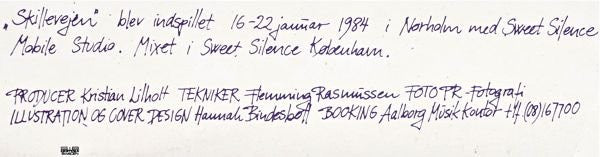 „Skillevejen" blev indspillet 16-22 januar 1984 i Nørholm med Sweet Silence
Mobile Studio. Mixet i Sweet Silence København.
PRODUCER Kristian Lilholt TEKNIKER Flemming Rasmussen FOTO PR-Fotografi
ILLUSTRATION OG COVER DESIGN Hannah Bindesbøll BOOKING Aalborg Musik Kontor tlf (08)167700